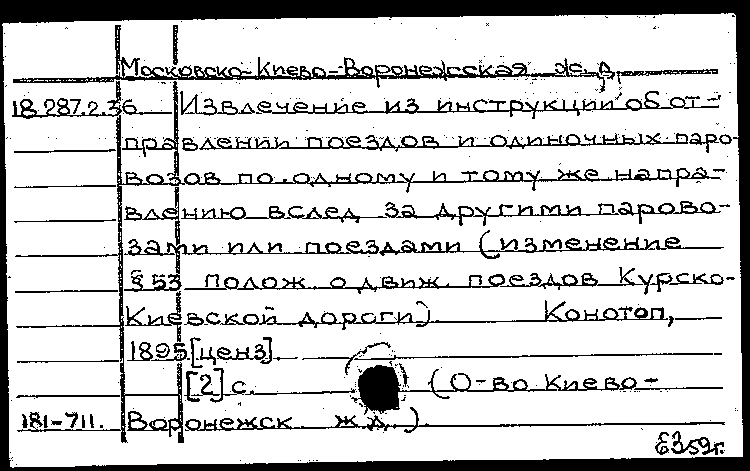 Московско-Киево-Воронежская ж.д.
18.287.2.36. Извлечение из инструкции об от-
правлении поездов и одиночных паро-
возов по одному и тому же напра-
влению вслед за другими парово-
зами или поездами (изменение
§ 53 полож. о движ. поездов Курско-
Киевской дороги). Конотоп,
1895 [ценз].
[2] с. (О-во Киево-
181-711. Воронежск. ж.д.).
59г.